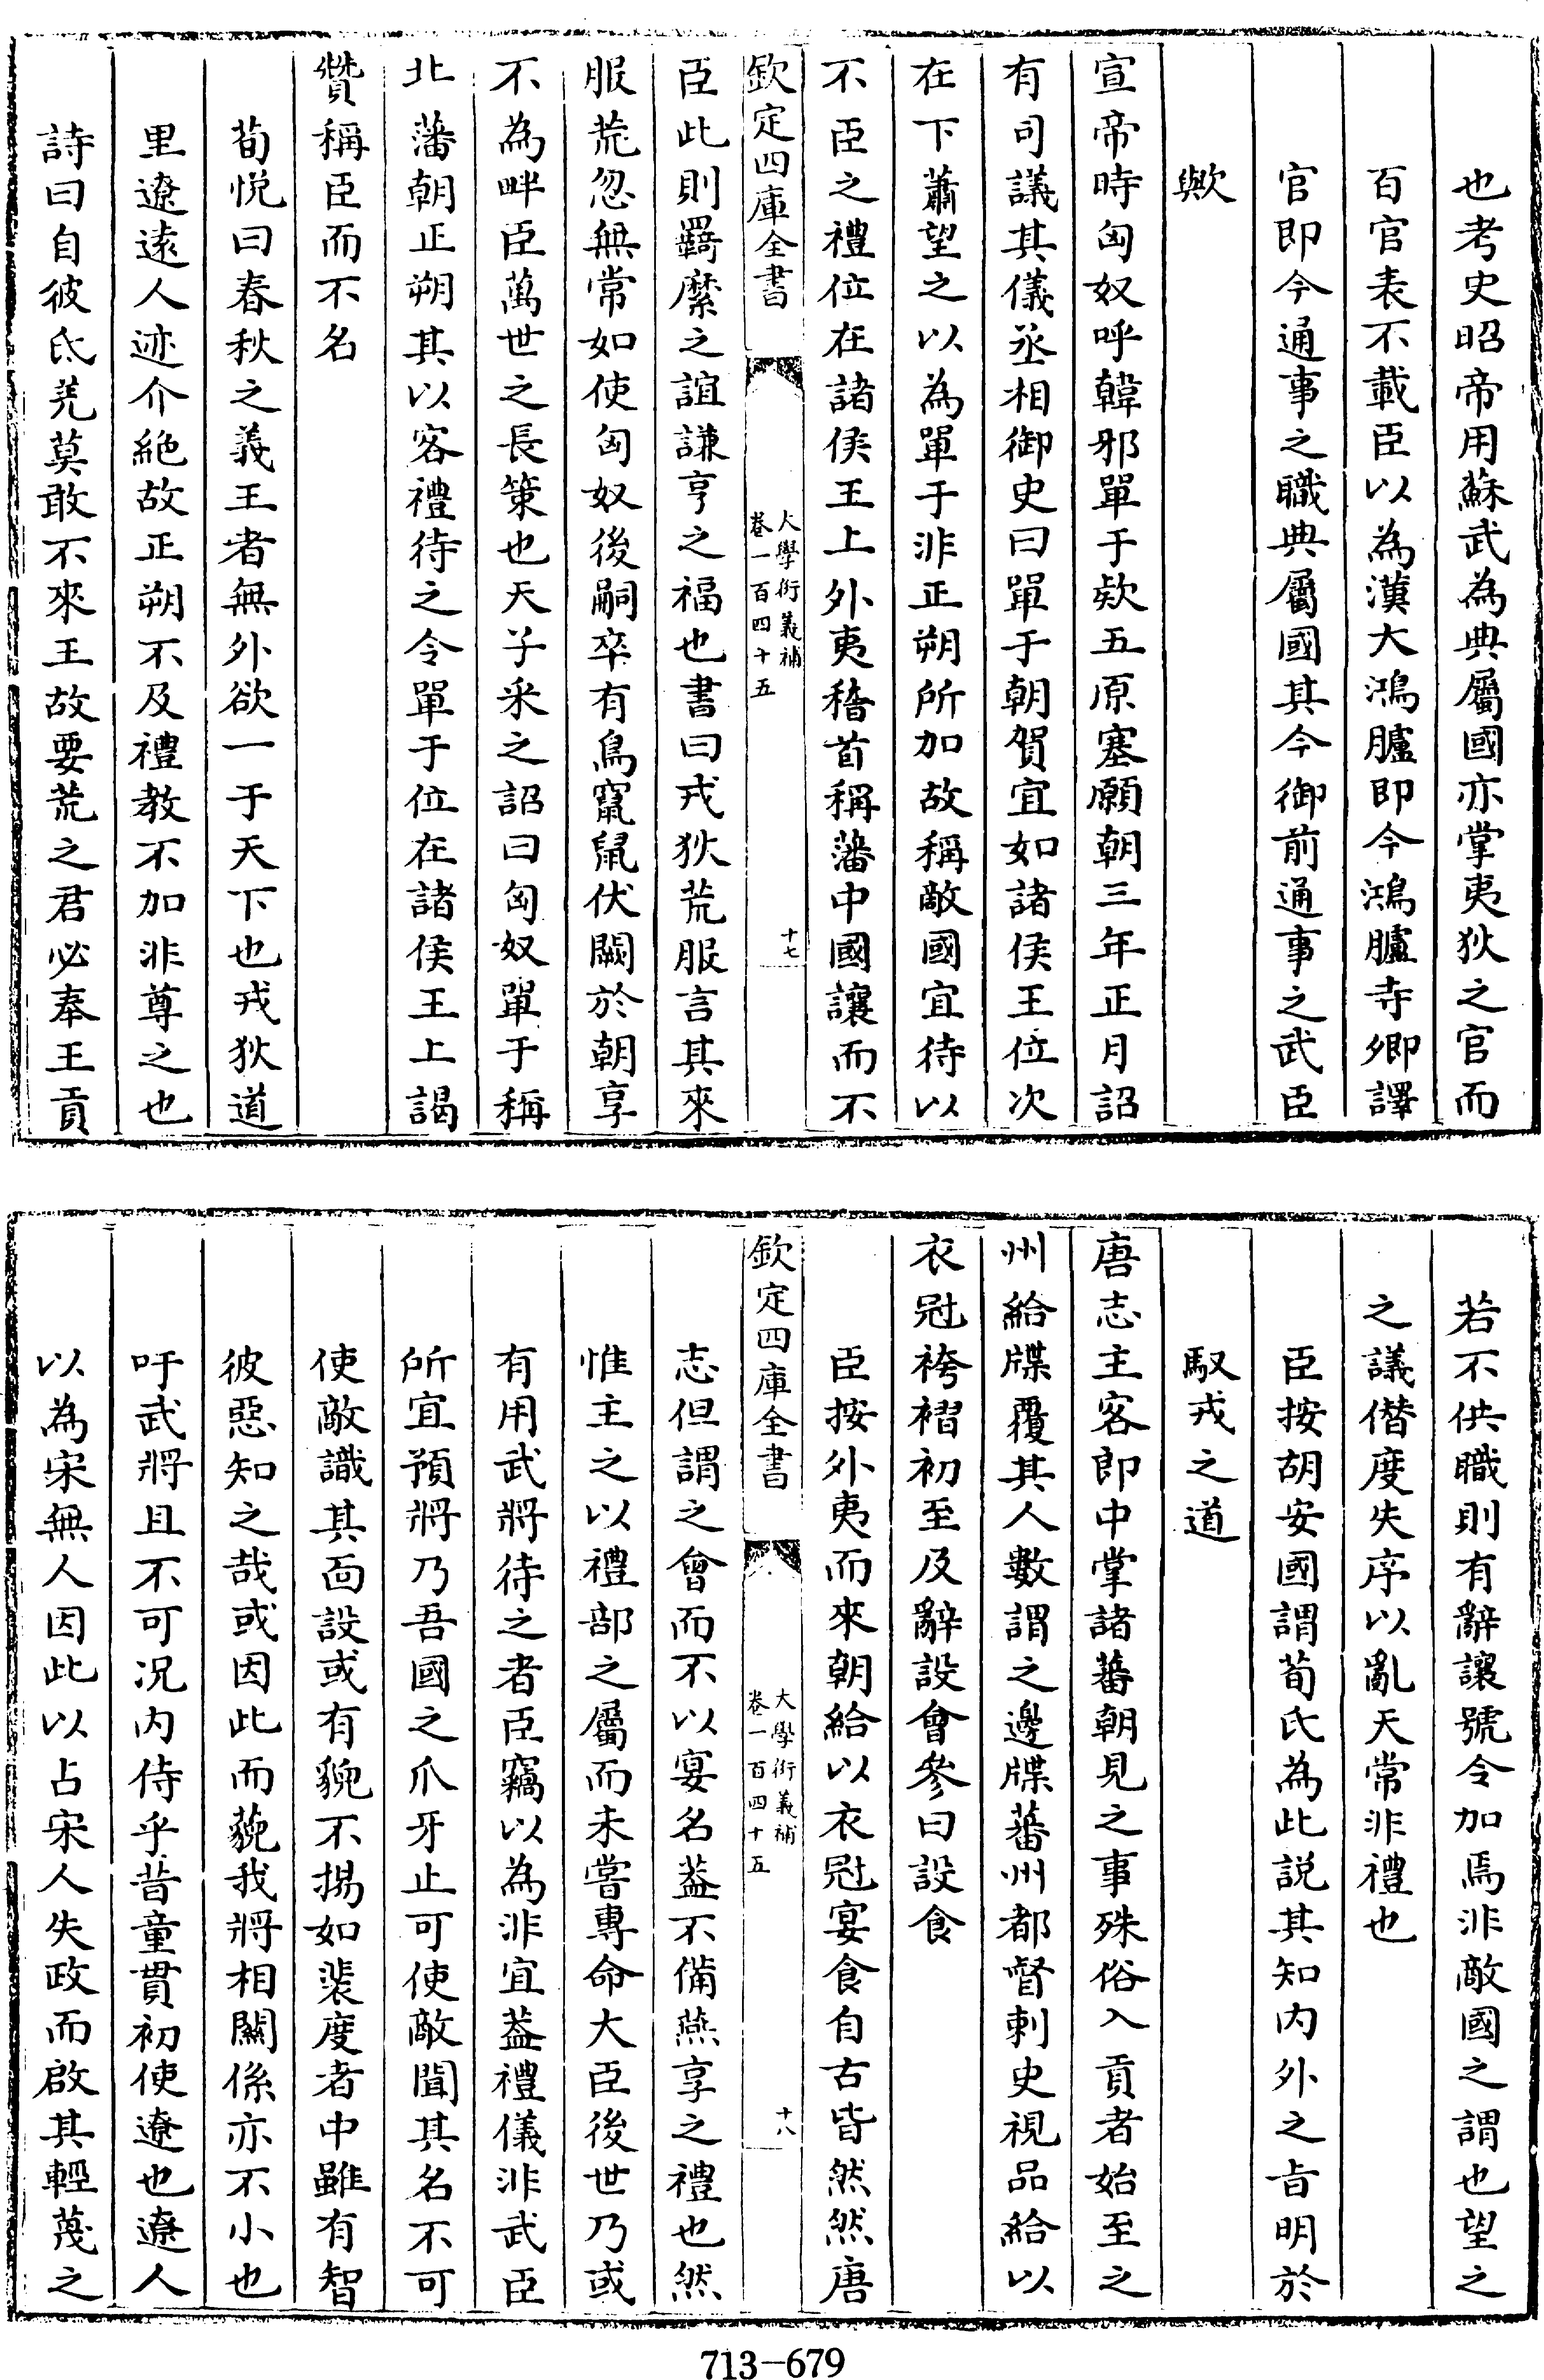 也考史昭帝用蘇武為典屬國亦掌夷狄之官而
百官表不載臣以為漢大鴻臚即今鴻臚寺卿譯
官即今通事之職典屬國其今御前通事之武臣
歟
宣帝時匈奴呼韓邪單于欵五原塞願朝三年正月詔
有司議其儀丞相御史曰單于朝賀宜如諸侯王位次
在下蕭望之以為單于非正朔所加故稱敵國宜待以
不臣之禮位在諸侯王上外夷稽首稱藩中國讓而不
欽定四庫全書
大學衍義補
卷一百四十五
十七
臣此則羈縻之誼謙亨之福也書曰戎狄荒服言其來
服荒忽無常如使匈奴後嗣卒有鳥竄鼠伏闕於朝享
不為畔臣萬世之長策也天子采之詔曰匈奴單于稱
北藩朝正朔其以客禮待之令單于位在諸侯王上謁
贊稱臣而不名
荀悦曰春秋之義王者無外欲一于天下也戎狄道
里遼遠人迹介絶故正朔不及禮教不加非尊之也
詩曰自彼氐羌莫敢不來王故要荒之君必奉王貢
若不供職則有辭讓號令加焉非敵國之謂也望之
之議僣度失序以亂天常非禮也
臣按胡安國謂荀氏為此説其知内外之旨明於
馭戎之道
唐志主客郎中掌諸蕃朝見之事殊俗入貢者始至之
州給牒覆其人數謂之邊牒蕃州都督刺史視品給以
衣冠袴褶初至及辭設會參曰設食
臣按外夷而來朝給以衣冠宴食自古皆然然唐
欽定四庫全書
大學衍義補
卷一百四十五
十八
志但謂之會而不以宴名葢不備燕享之禮也然
惟主之以禮部之屬而未嘗專命大臣後世乃或
有用武將待之者臣竊以為非宜葢禮儀非武臣
所宜預將乃吾國之爪牙止可使敵聞其名不可
使敵識其面設或有貌不揚如裴度者中雖有智
彼惡知之哉或因此而藐我將相關係亦不小也
吁武將且不可况内侍乎昔童貫初使遼也遼人
以為宋無人因此以占宋人失政而啟其輕蔑之
713-679